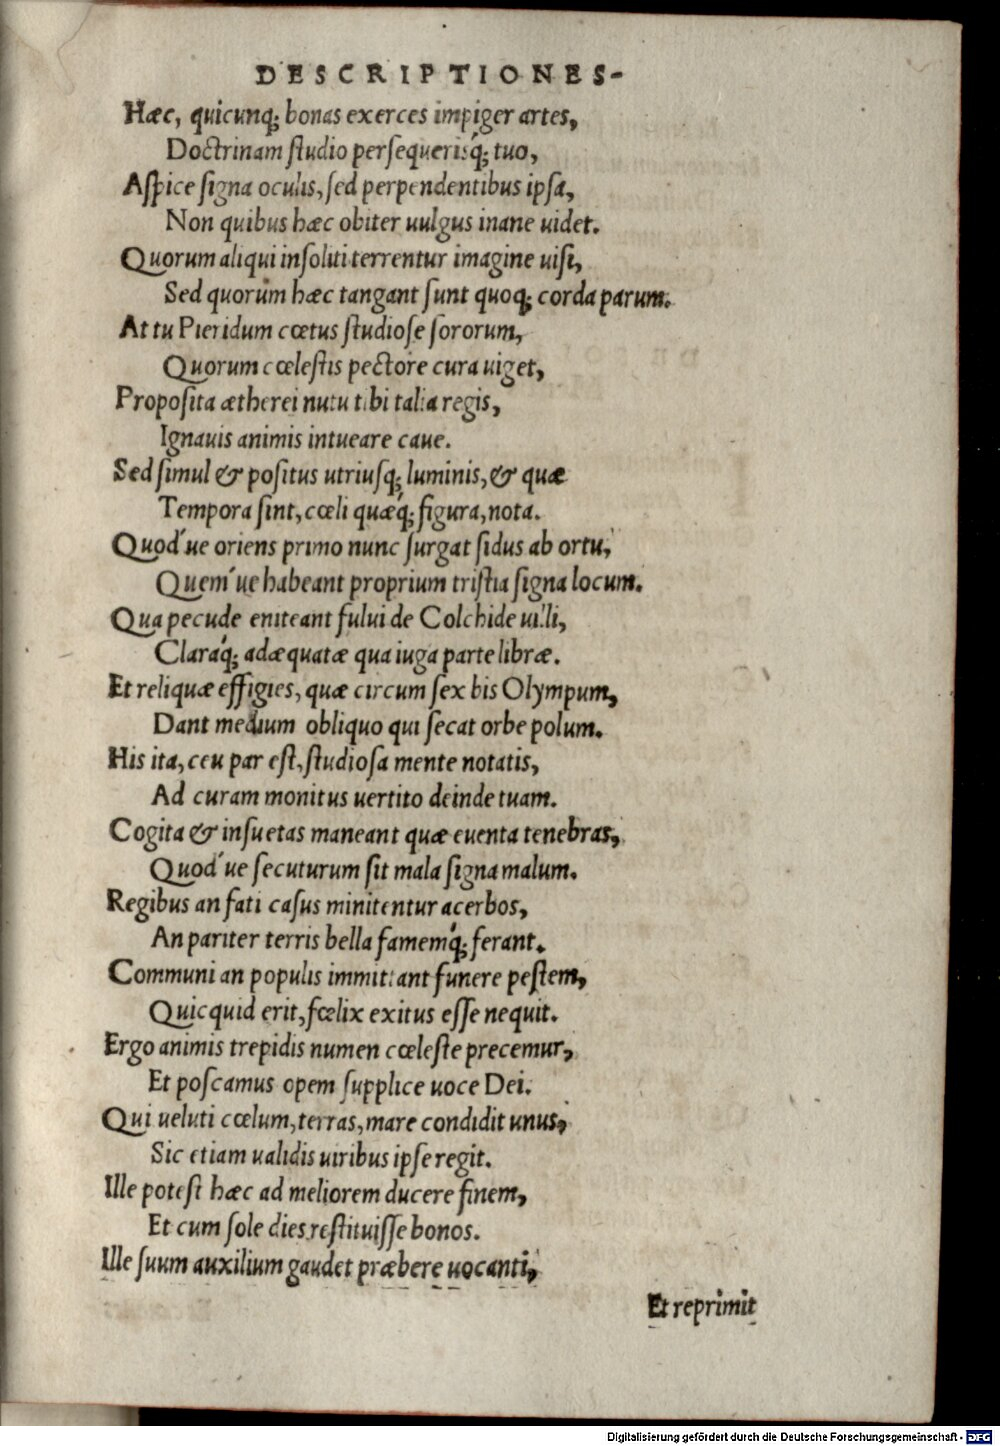 DESCRIPTIONES-
Hæc, quicunq; bonas exerces impiger artes,
Doctrinam ſtudio perſequeriſq́; tuo,
Aſpice ſigna oculis, ſed perpendentibus ipſa,
Non quibus hæc obiter uulgus inane uidet.
Quorum aliqui inſoliti terrentur imagine uiſi,
Sed quorum hæc tangant ſunt quoq; corda parum.
At tu Pieridum cœtus ſtudioſe ſororum,
Quorum cœleſtis pectore cura uiget,
Propoſita ætherei nutu tibi talia regis,
Ignauis animis intueare caue.
Sed ſimul & poſitus utriuſq; luminis, & quæ
Tempora ſint, cœli quæq́; figura, nota.
Quod´ue oriens primo nunc ſurgat ſidus ab ortu,
Quem´ue habeant proprium triſtia ſigna locum.
Qua pecude eniteant fului de Colchide uilli,
Claraq́; adæquatæ qua iuga parte libræ.
Et reliquæ effigies, quæ circum ſex bis Olympum,
Dant medium obliquo qui ſecat orbe polum.
His ita, ceu par eſt, ſtudioſa mente notatis,
Ad curam monitus uertito deinde tuam.
Cogita & inſuetas maneant quæ euenta tenebras,
Quod´ue ſecuturum ſit mala ſigna malum.
Regibus an fati caſus minitentur acerbos,
An pariter terris bella famemq́; ferant.
Communi an populis immittant funere peſtem,
Quicquid erit, fœlix exitus eſſe nequit.
Ergo animis trepidis numen cœleſte precemur,
Et poſcamus opem ſupplice uoce Dei.
Qui ueluti cœlum, terras, mare condidit unus,
Sic etiam ualidis uiribus ipſe regit.
Ille poteſt hæc ad meliorem ducere finem,
Et cum ſole dies reſtituiſſe bonos.
Ille ſuum auxilium gaudet præbere uocanti,
Et reprimit
Digitalisierung gefördert durch die Deutsche Forschungsgemeinschaft - DFG